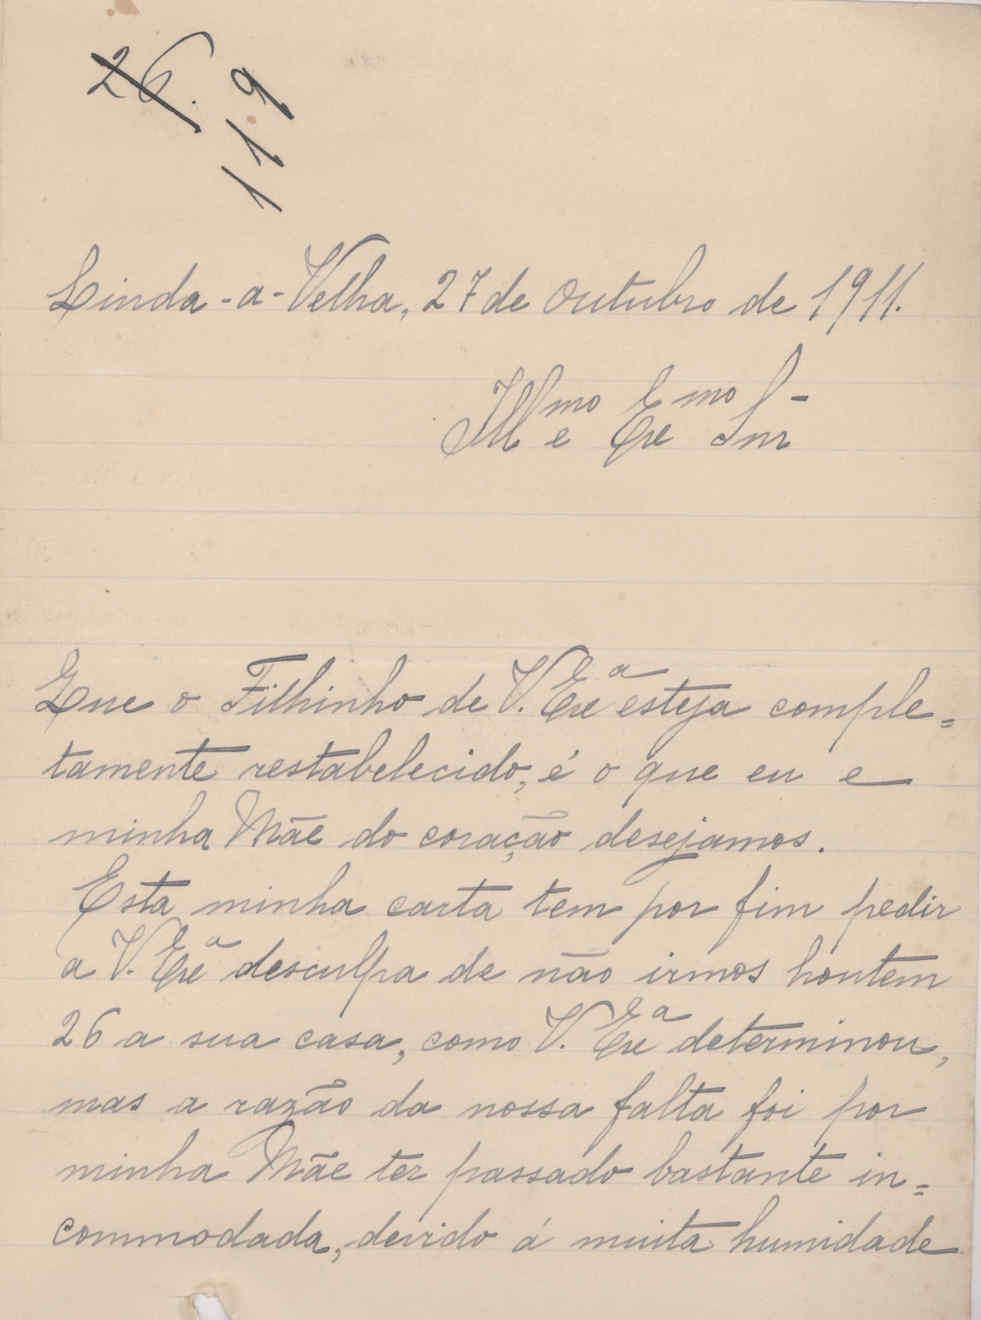 26.
119
Linda-a-Velha, 27 de Outubro de 1911.
Illmo e Exmo Snr
Que o Filhinho de V. Exª esteja comple=
tamente restabelecido, é o que eu e
minha Mãe do coração desejamos.
Esta minha carta tem por fim pedir
a V. Exª desculpa de não irmos hontem
26 a sua casa, como V. Exª determinou,
mas a razão da nossa falta foi por
minha Mãe ter passado bastante in=
commodada, devido á muita humidade